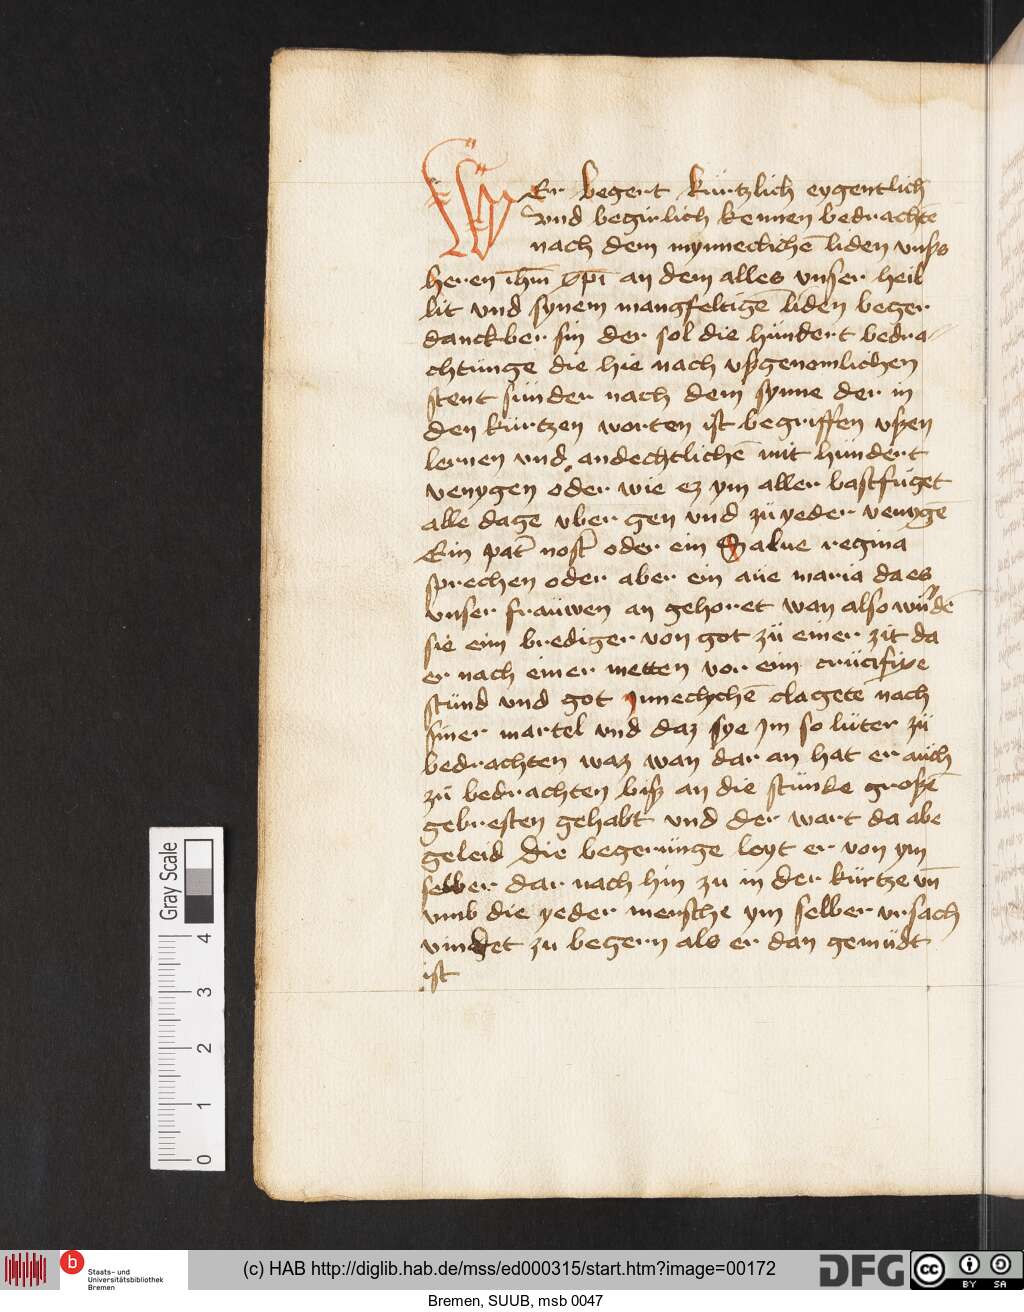 WEr begert kürtzlich eygentlich
vnd begirlich kennen bedrachtē
nach dem mynneclichē liden vnßs
heren ihm̄ xp̄i an dem alles vnser heil
lit vnd synem mangfeltigē liden beger
danckber sin der sol die hündert bedra-
chtünge die hie nach vßgenomlichen
stent sünder nach dem synne der in
den kürtzen worten ist begriffen vßen
lernen vnd andechtlichē mit hündert
venygen oder wie ez ym aller bast füget
alle dage vber gen vnd zü yeder venygē
Ein pat̄ nost̄ oder ein Salue regina
sprechen oder aber ein aüe maria da es
vnser fraüwen an gehoret wan also wůrdē
sie eim brediger von got zü einer zit da
er nach einer metten vor eim crücifixe
stünd vnd got clagete nach
siner martel vnd daz sye Im so lüter zü
bedrachten waz wan dar an hat er aüch
zü bedrachten biß an die stünde großē
gebresten gehabt vnd der wart da abe
geleid Die begerünge leyt er von ym
selber dar nach hin zu in der kürtze vn̄
vmb die yeder mensche ym selber vrsach
vindet zu begern als er dan gemüdt
ist
Gray Scale
4
3
2
1
0
b
Staats- und
Universitätsbibliothek
Bremen
(c) HAB http://diglib.hab.de/mss/ed000315/start.htm?image=00172
DFG
cc BY SA
Bremen, SUUB, msb 0047